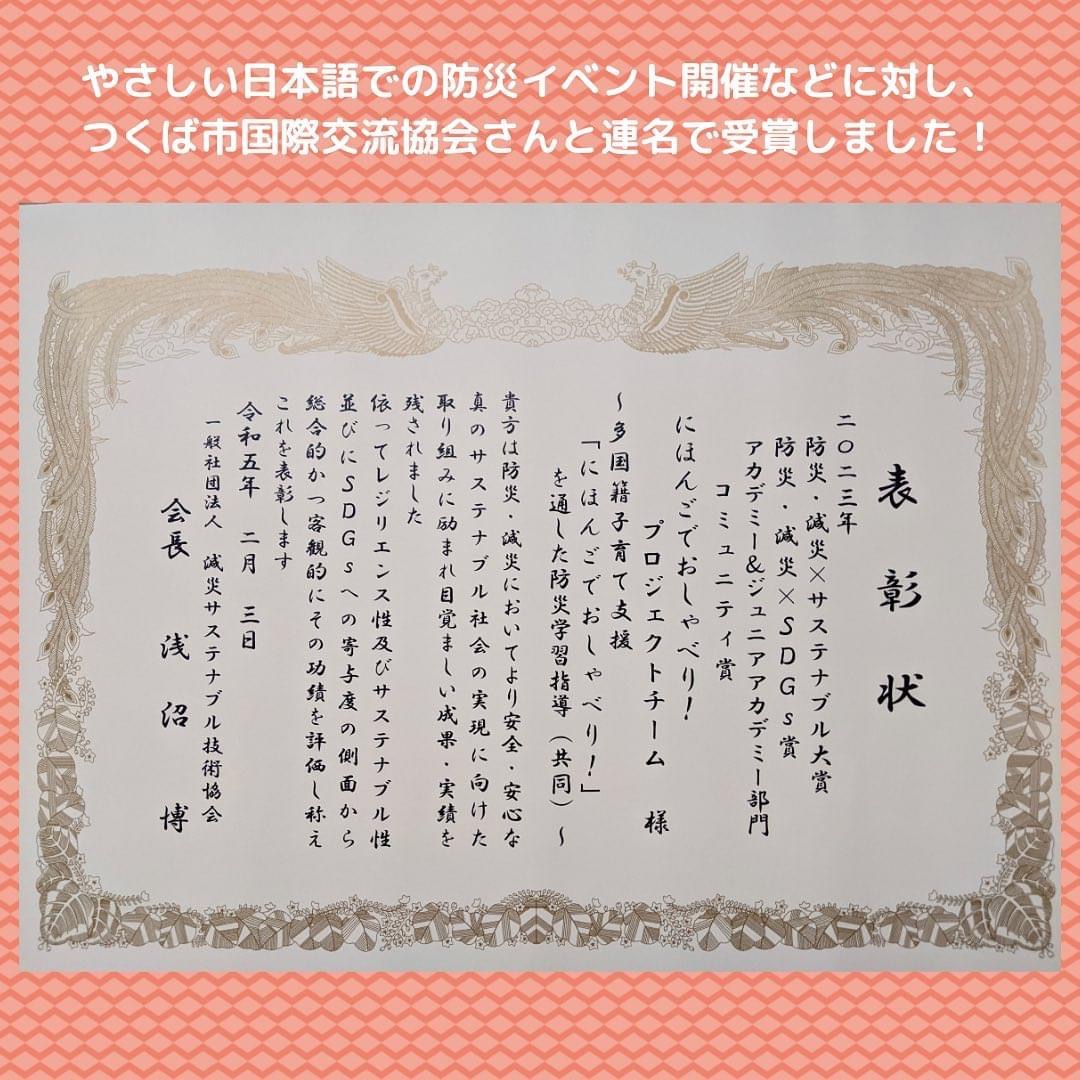 やさしい日本語での防災イベント開催などに対し、
つくば市国際交流協会さんと連名で受賞しました！
表彰状
二〇二三年
防災・減災×サステナブル大賞
防災・減災×SDGs賞
アカデミー&ジュニアアカデミー部門
コミュニティ賞
にほんごでおしゃべり！
プロジェクトチーム 様
～多国籍子育て支援
「にほんごでおしゃべり！」
を通した防災学習指導（共同）～
貴方は防災・減災においてより安全・安心な
真のサステナブル社会の実現に向けた
取り組みに励まれ目覚ましい成果・実績を
残されました
依ってレジリエンス性及びサステナブル性
並びにSDGsへの寄与度の側面から
総合的かつ客観的にその功績を評価し称え
これを表彰します
令和五年 二月 三日
一般社団法人 減災サステナブル技術協会
会長 浅沼 博